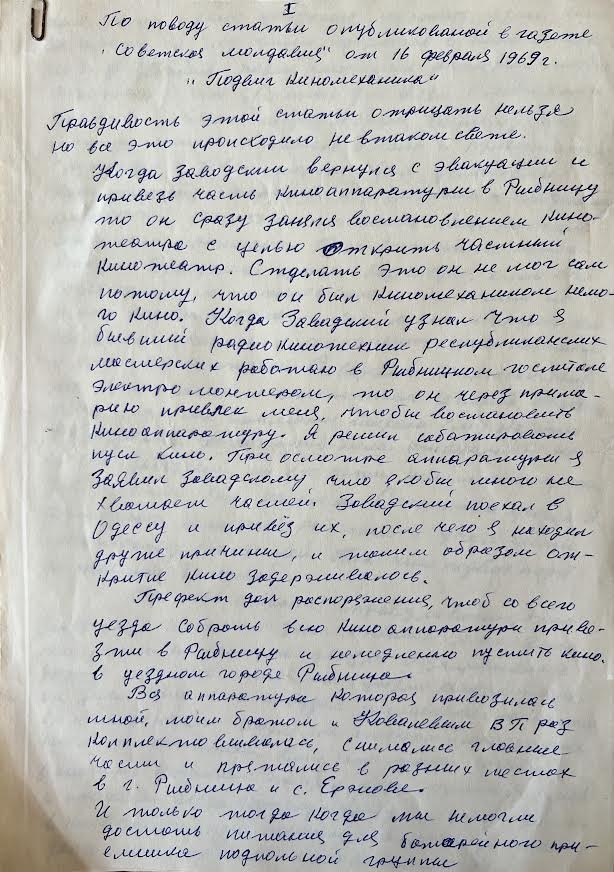 I
По поводу статьи опубликованой в газете
„Советская молдавия" от 16 февраля 1969 г.
„Подвиг Киномеханика"
Правдивость этой статьи отрицать нельзя
но все это происходило не в таком свете.
Когда Заводский вернулся с эвакуации и
привезь часть киноаппаратуры в Рыбницу
то он сразу занялся востановлением кино-
театра с целью открыть частный
кинотеатр. Сделать это он не мог сам
потому, что он был киномехаником немо-
го кино. Когда Завадский узнал что я
бывший радиокинотехник республиканских
мастерских работаю в Рыбницком госпитале
электромонтером, то он через прима-
рию привлек меня, чтобы востановить
киноаппаратуру. Я решил саботировать
пуск кино. При осмотре аппаратуры я
заявил Завадскому что якобы много не
хватает частей. Завадский поехал в
Одессу и привёз их, после чего я находил
другие причины, и таким образом от-
крытие кино задерживалось.
Префект дал распоряжение, чтоб со всего
уезда собрать всю киноаппаратуру приве-
зти в Рыбницу и немедленно пустить кино.
в уездном городе Рыбница.
Вся аппаратура которая привозилась
мной, моим братом и Ковалевым В П раз
комплектовывалась, снимались главные
части и прятались в разных местах
в г. Рыбница и с. Ержова.
И только тогда когда мы немогли
достать питания для батарейного при-
емника подпольной группы